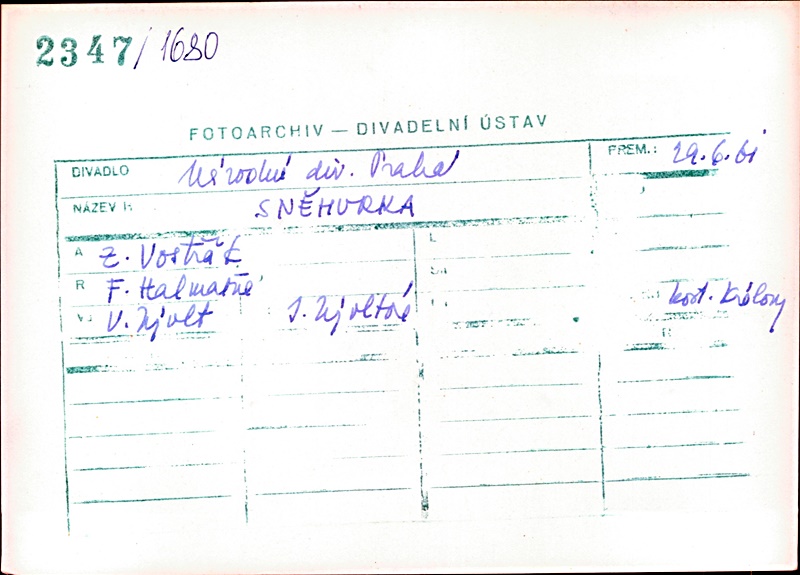 2347/1680
FOTOARCHIV — DIVADELNÍ ÚSTAV
DIVADLO Národní div. Praha PREM.: 29.6.61
NÁZEV SNĚHURKA
A Z. Vostřák L
R F. Halmazňa
V V. Nývlt J. Nývltová kost. Královy